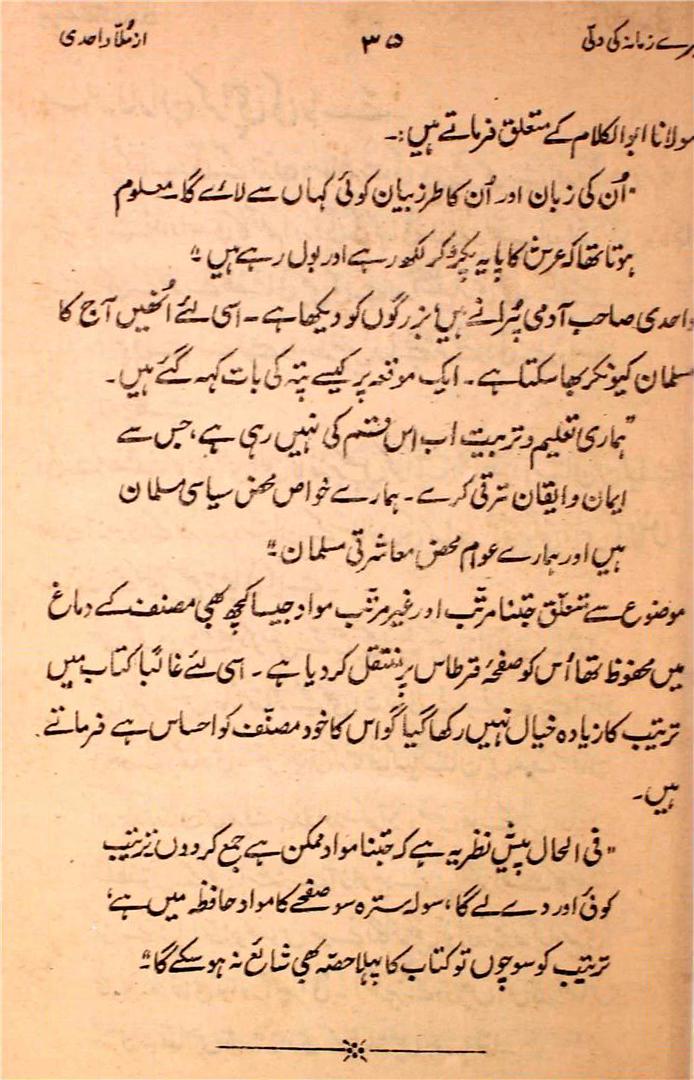 میرے زمانہ کی دلّی ۳۵ از مُلّا واحدی
مولانا ابوالکلام کے متعلق فرماتے ہیں:۔
"اُن کی زبان اور اُن کا طرز بیان کوئی کہاں سے لائے گا۔ معلوم
ہوتا تھا کہ عرش کا پایہ پکڑ کر لکھ رہے اور بول رہے ہیں"
واحدی صاحب آدمی پُرانے ہیں بزرگوں کو دیکھا ہے۔ اسی لئے اُنھیں آج کا
مسلمان کیونکر بھا سکتا ہے۔ ایک موقعہ پر کیسے پتہ کی بات کہہ گئے ہیں۔
"ہماری تعلیم و تربیت اب اس قسم کی نہیں رہی ہے، جس سے
ایمان و ایقان ترقی کرے۔ ہمارے خواص محض سیاسی مسلمان
ہیں اور ہمارے عوام محض معاشرتی مسلمان۔"
موضوع سے متعلق جتنا مرتّب اور غیر مرتّب مواد جیسا کچھ بھی مصنف کے دماغ
میں محفوظ تھا اُس کو صفحۂ قرطاس پر منتقل کر دیا ہے۔ اسی لئے غالباً کتاب میں
ترتیب کا زیادہ خیال نہیں رکھا گیا گو اس کا خود مصنّف کو احساس ہے فرماتے
ہیں۔
"فی الحال پیشِ نظر یہ ہے کہ جتنا مواد ممکن ہے جمع کر دوں، ترتیب
کوئی اور دے لے گا، سولہ سترہ سو صفحے کا مواد حافظہ میں ہے،
ترتیب کو سوچوں تو کتاب کا پہلا حصّہ بھی شائع نہ ہو سکے گا۔"